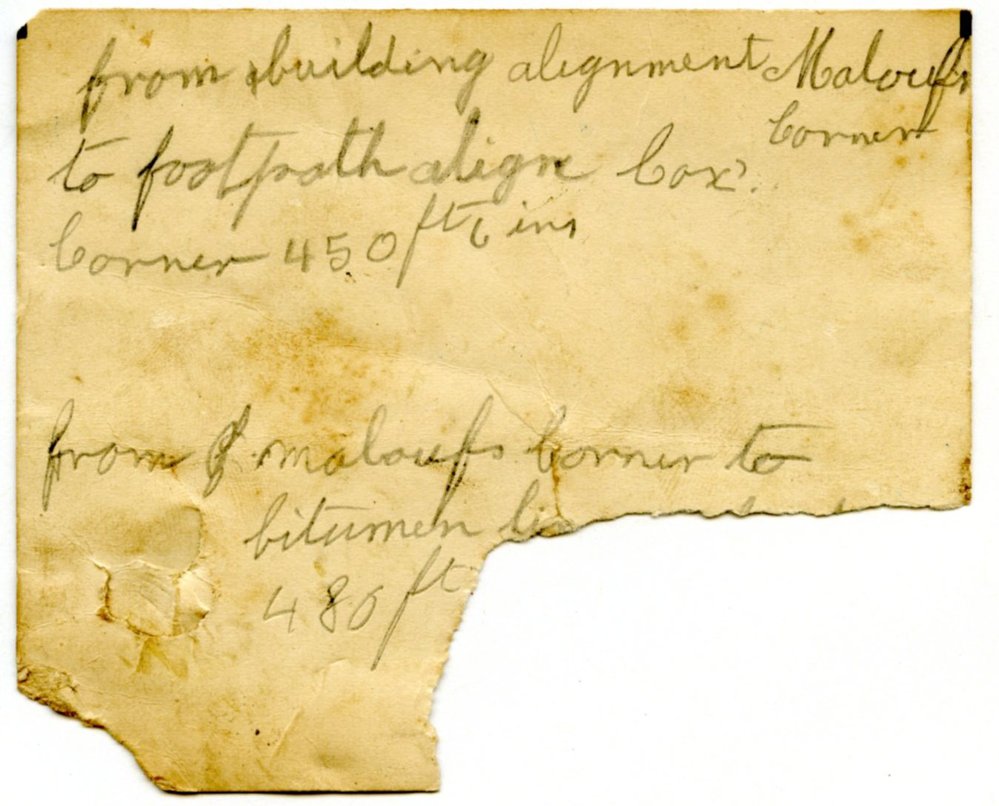 from building alignment Maloufs
Corner
to footpath align Cox'.
Corner 450 ft 6 ins
from maloufs Corner to
bitumen
480 ft